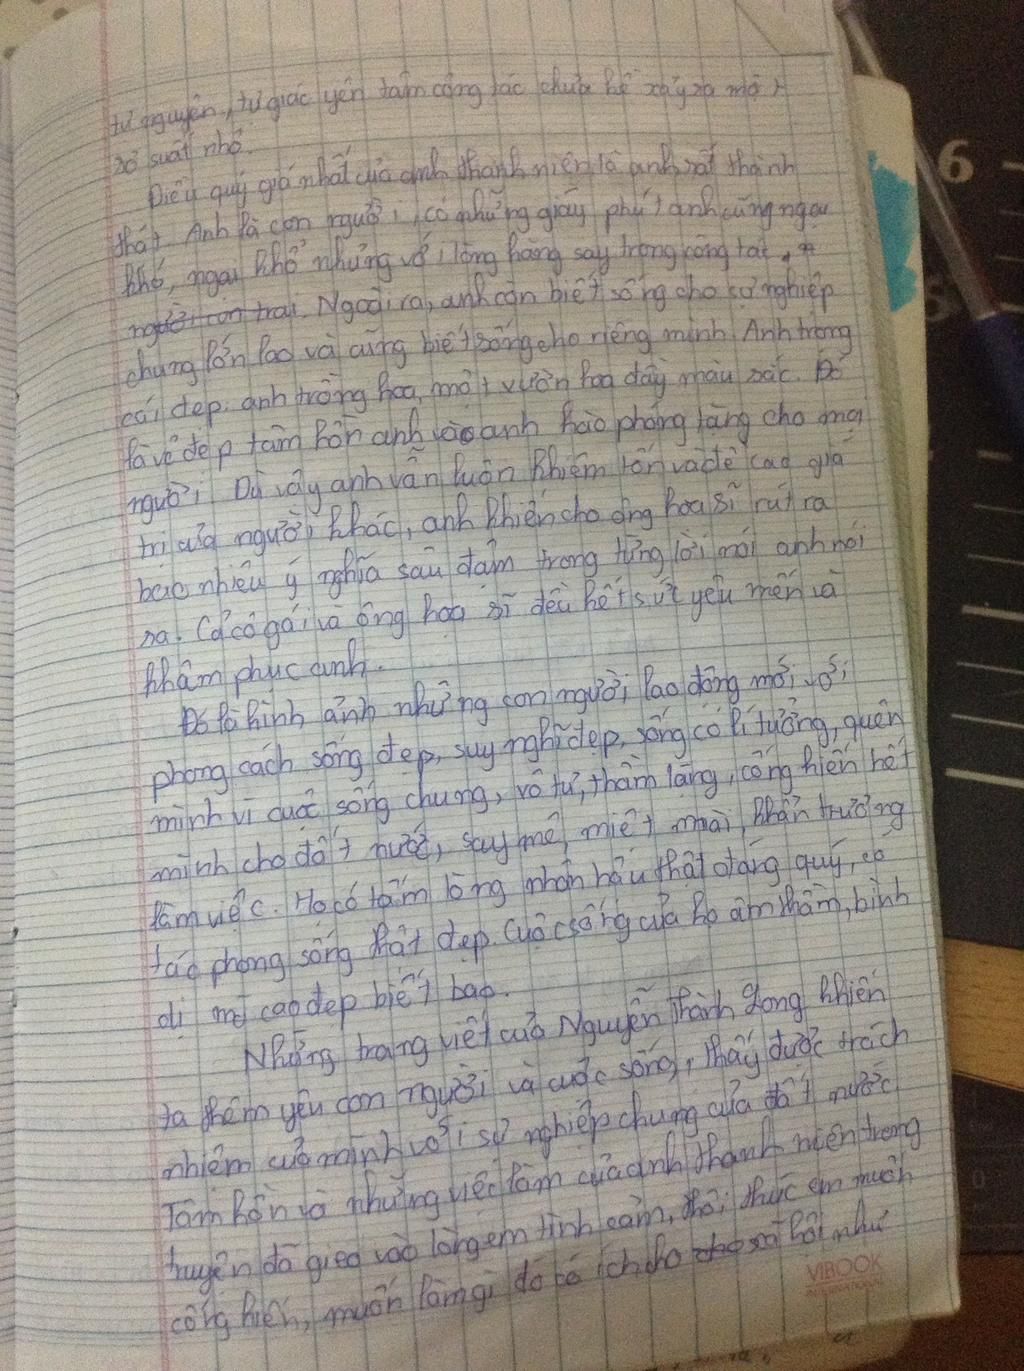 tự nguyện, tự giác yên tâm công tác chưa hề xảy ra một
sơ suất nhỏ.
Điều quý giá nhất của anh thanh niên là anh rất thành
thật. Anh là con người, có những giây phút anh cũng ngại
khó, ngại khổ nhưng với lòng hăng say trong công tác,
người con trai. Ngoài ra, anh còn biết sống cho sự nghiệp
chung lớn lao và cũng biết sống cho riêng mình. Anh trong
cái đẹp: anh trồng hoa, một vườn hoa đầy màu sắc. Đó
là vẻ đẹp tâm hồn anh và anh hào phóng tặng cho mọi
người. Dù vậy anh vẫn luôn khiêm tốn và đề cao giá
trị của người khác, anh khiến cho ông họa sĩ rút ra
bao nhiêu ý nghĩa sâu đậm trong từng lời mới anh nói
ra. Cả cô gái và ông họa sĩ đều hết sức yêu mến và
khâm phục anh.
Đó là hình ảnh những con người lao động mới với
phong cách sống đẹp, suy nghĩ đẹp, sống có lí tưởng, quên
mình vì cuộc sống chung, vô tư, thầm lặng, cống hiến hết
mình cho đất nước, say mê, miệt mài, khẩn trương
làm việc. Họ có tấm lòng nhân hậu thật đáng quý, có
tác phong sống thật đẹp. Cuộc sống của họ âm thầm, bình
dị mà cao đẹp biết bao.
Những trang viết của Nguyễn Thành Long khiến
ta thêm yêu con người và cuộc sống, thấy được trách
nhiệm của mình với sự nghiệp chung của đất nước
Tâm hồn và những việc làm của anh thanh niên trong
truyện đã gieo vào lòng em tình cảm, thôi thúc em muốn
cống hiến, muốn làm gì đó có ích cho xã hội như
VIBOOK
INTERNATIONAL
6
5